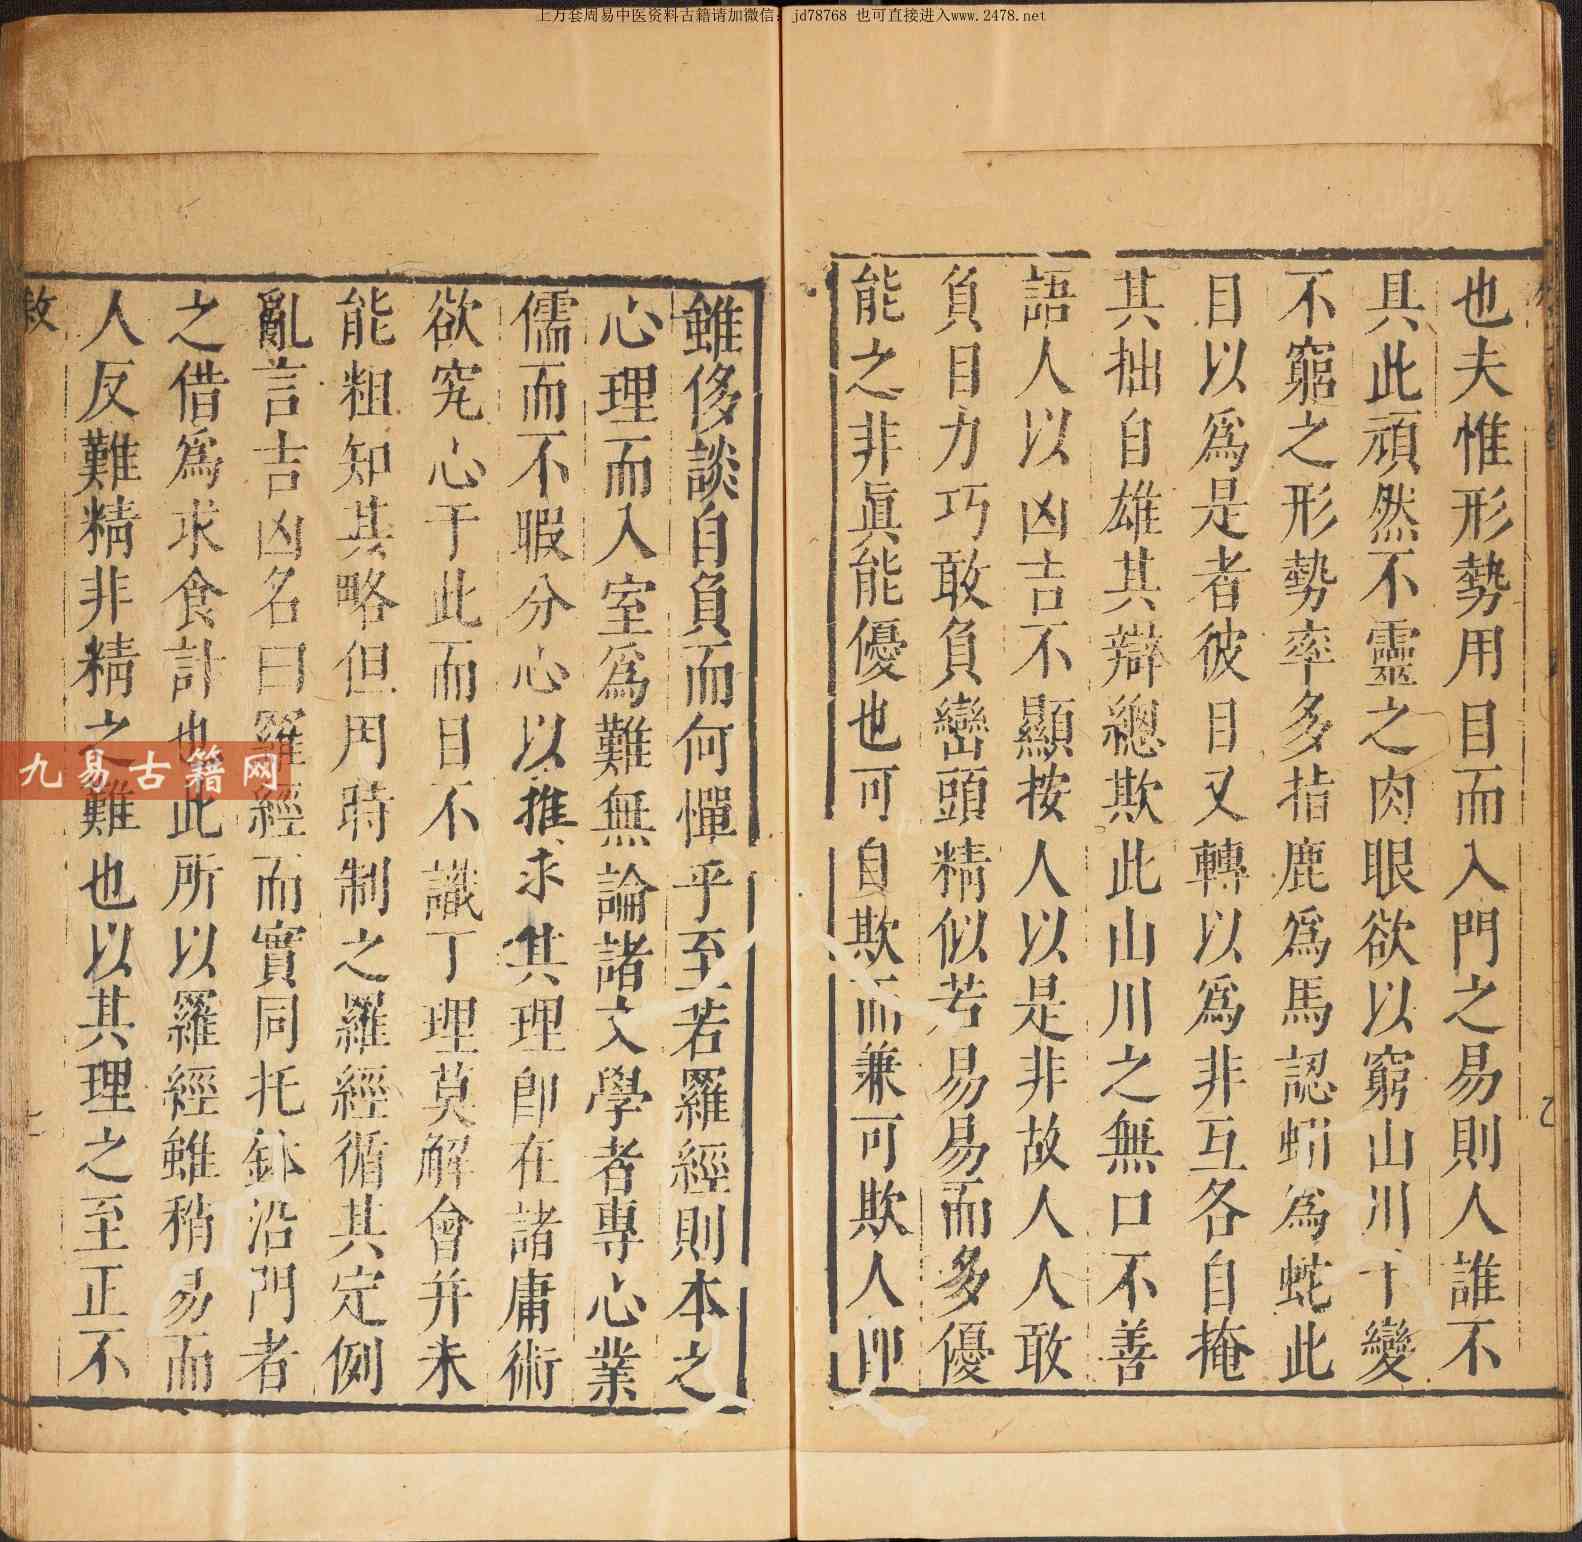 上万套周易中医资料古籍请加微信：jd78768 也可直接进入www.2478.net
也夫惟形勢用目而入門之易則人誰不
具此頑然不靈之肉眼欲以窮山川千變
不窮之形勢率多指鹿爲馬認蚓爲蛇此
目以爲是者彼目又轉以爲非互各自掩
其拙自雄其辯總欺此山川之無口不善
語人以凶吉不顯按人以是非故人人敢
負目力巧敢負巒頭精似若易易而多優
能之非眞能優也可自欺而兼可欺人卽
雖侈談自負而何憚乎至若羅經則本之
心理而入室爲難無論諸文學者專心業
儒而不暇分心以推求其理卽在諸庸術
欲究心于此而目不識丁理莫解會并未
能粗知其略但用時制之羅經循其定例
亂言吉凶名曰羅經而實同托鉢沿門者
之借爲求食計也此所以羅經雖稍易而
人反難精非精之難也以其理之至正不
敘
九易古籍网